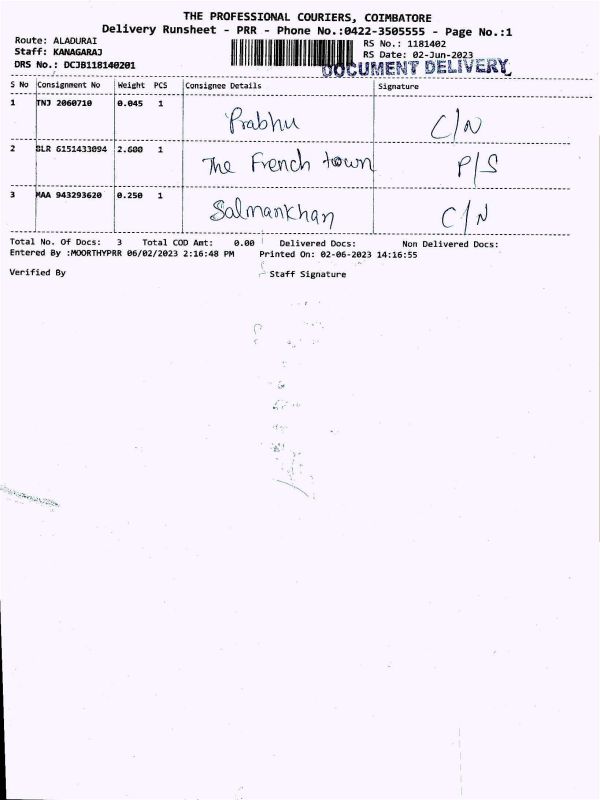 THE PROFESSIONAL COURIERS, COIMBATORE
Delivery Runsheet - PRR - Phone No.:0422-3505555 - Page No.:1
Route: ALADURAI
RS No.: 1181402
Staff: KANAGARAJ
RS Date: 02-Jun-2023
DRS No.: DCJB118140201
DOCUMENT DELIVERY
S No Consignment No Weight PCS Consignee Details Signature
1 TNJ 2060710 0.045 1 Prabhu C/N
2 BLR 6151433094 2.600 1 The French town P/S
3 MAA 943293620 0.250 1 Salmankhan C/N
Total No. Of Docs: 3 Total COD Amt: 0.00 Delivered Docs: Non Delivered Docs:
Entered By :MOORTHYPRR 06/02/2023 2:16:48 PM Printed On: 02-06-2023 14:16:55
Verified By Staff Signature